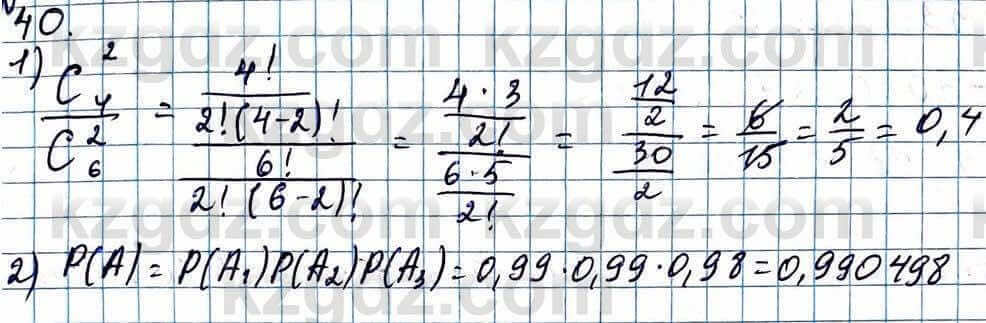 40.
1) C₄² / C₆² = (4! / 2!(4-2)!) / (6! / 2!(6-2)!) = (4·3 / 2!) / (6·5 / 2!) = (12/2) / (30/2) = 6/15 = 2/5 = 0,4
2) P(A) = P(A₁)P(A₂)P(A₃) = 0,99·0,99·0,98 = 0,990498
kzgdz.com